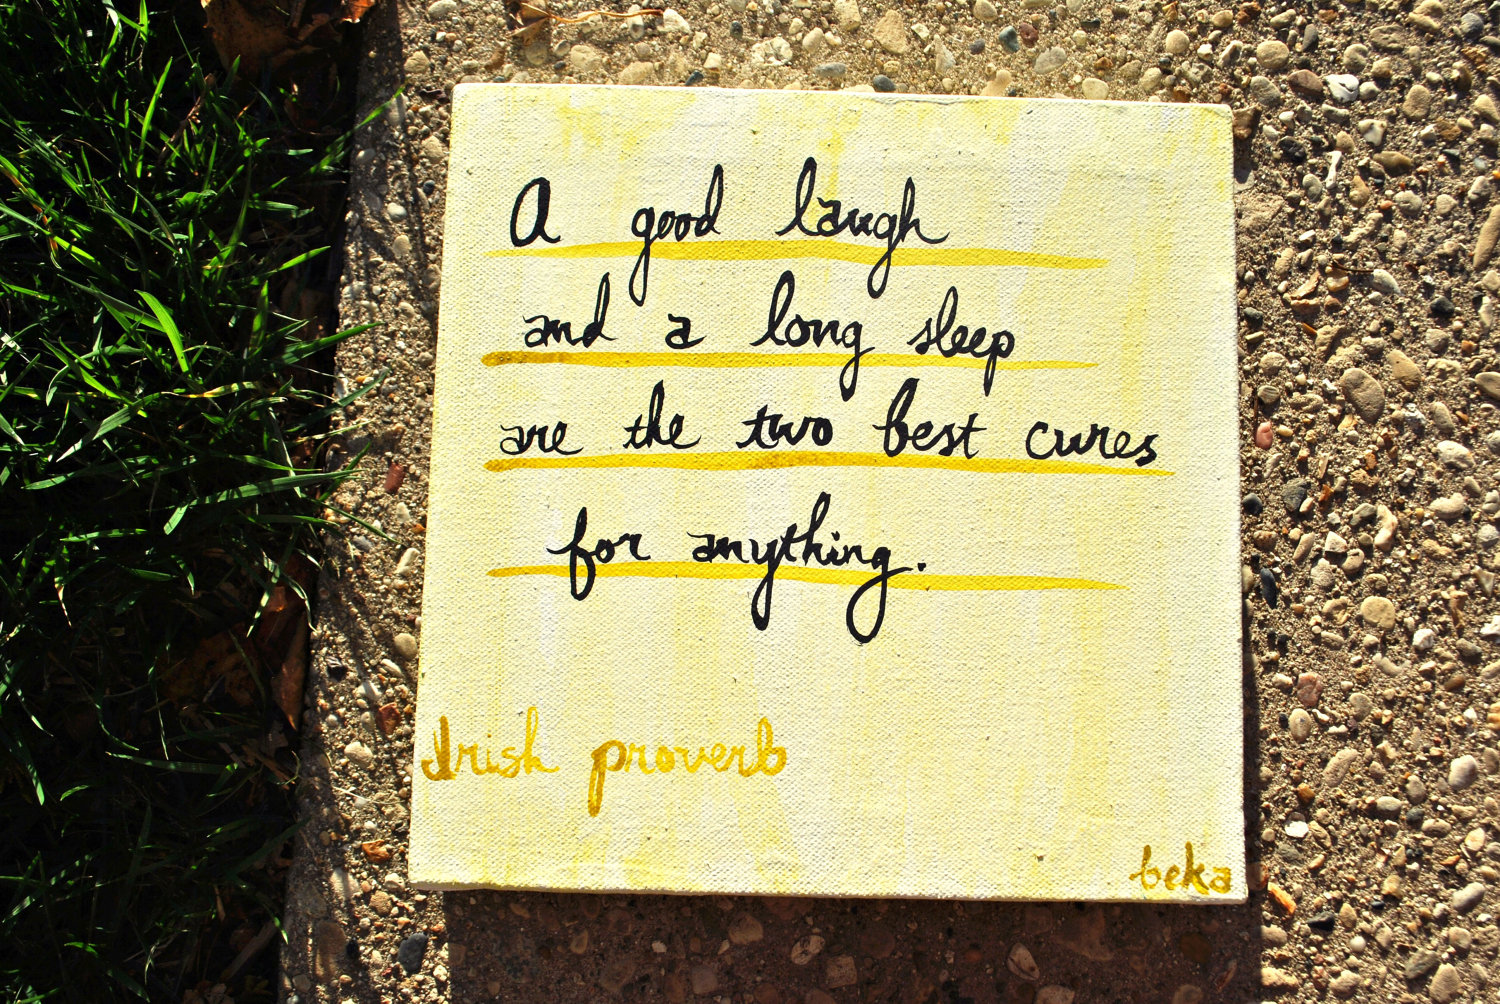 A good laugh
and a long sleep
are the two best cures
for anything.
Irish proverb
beka